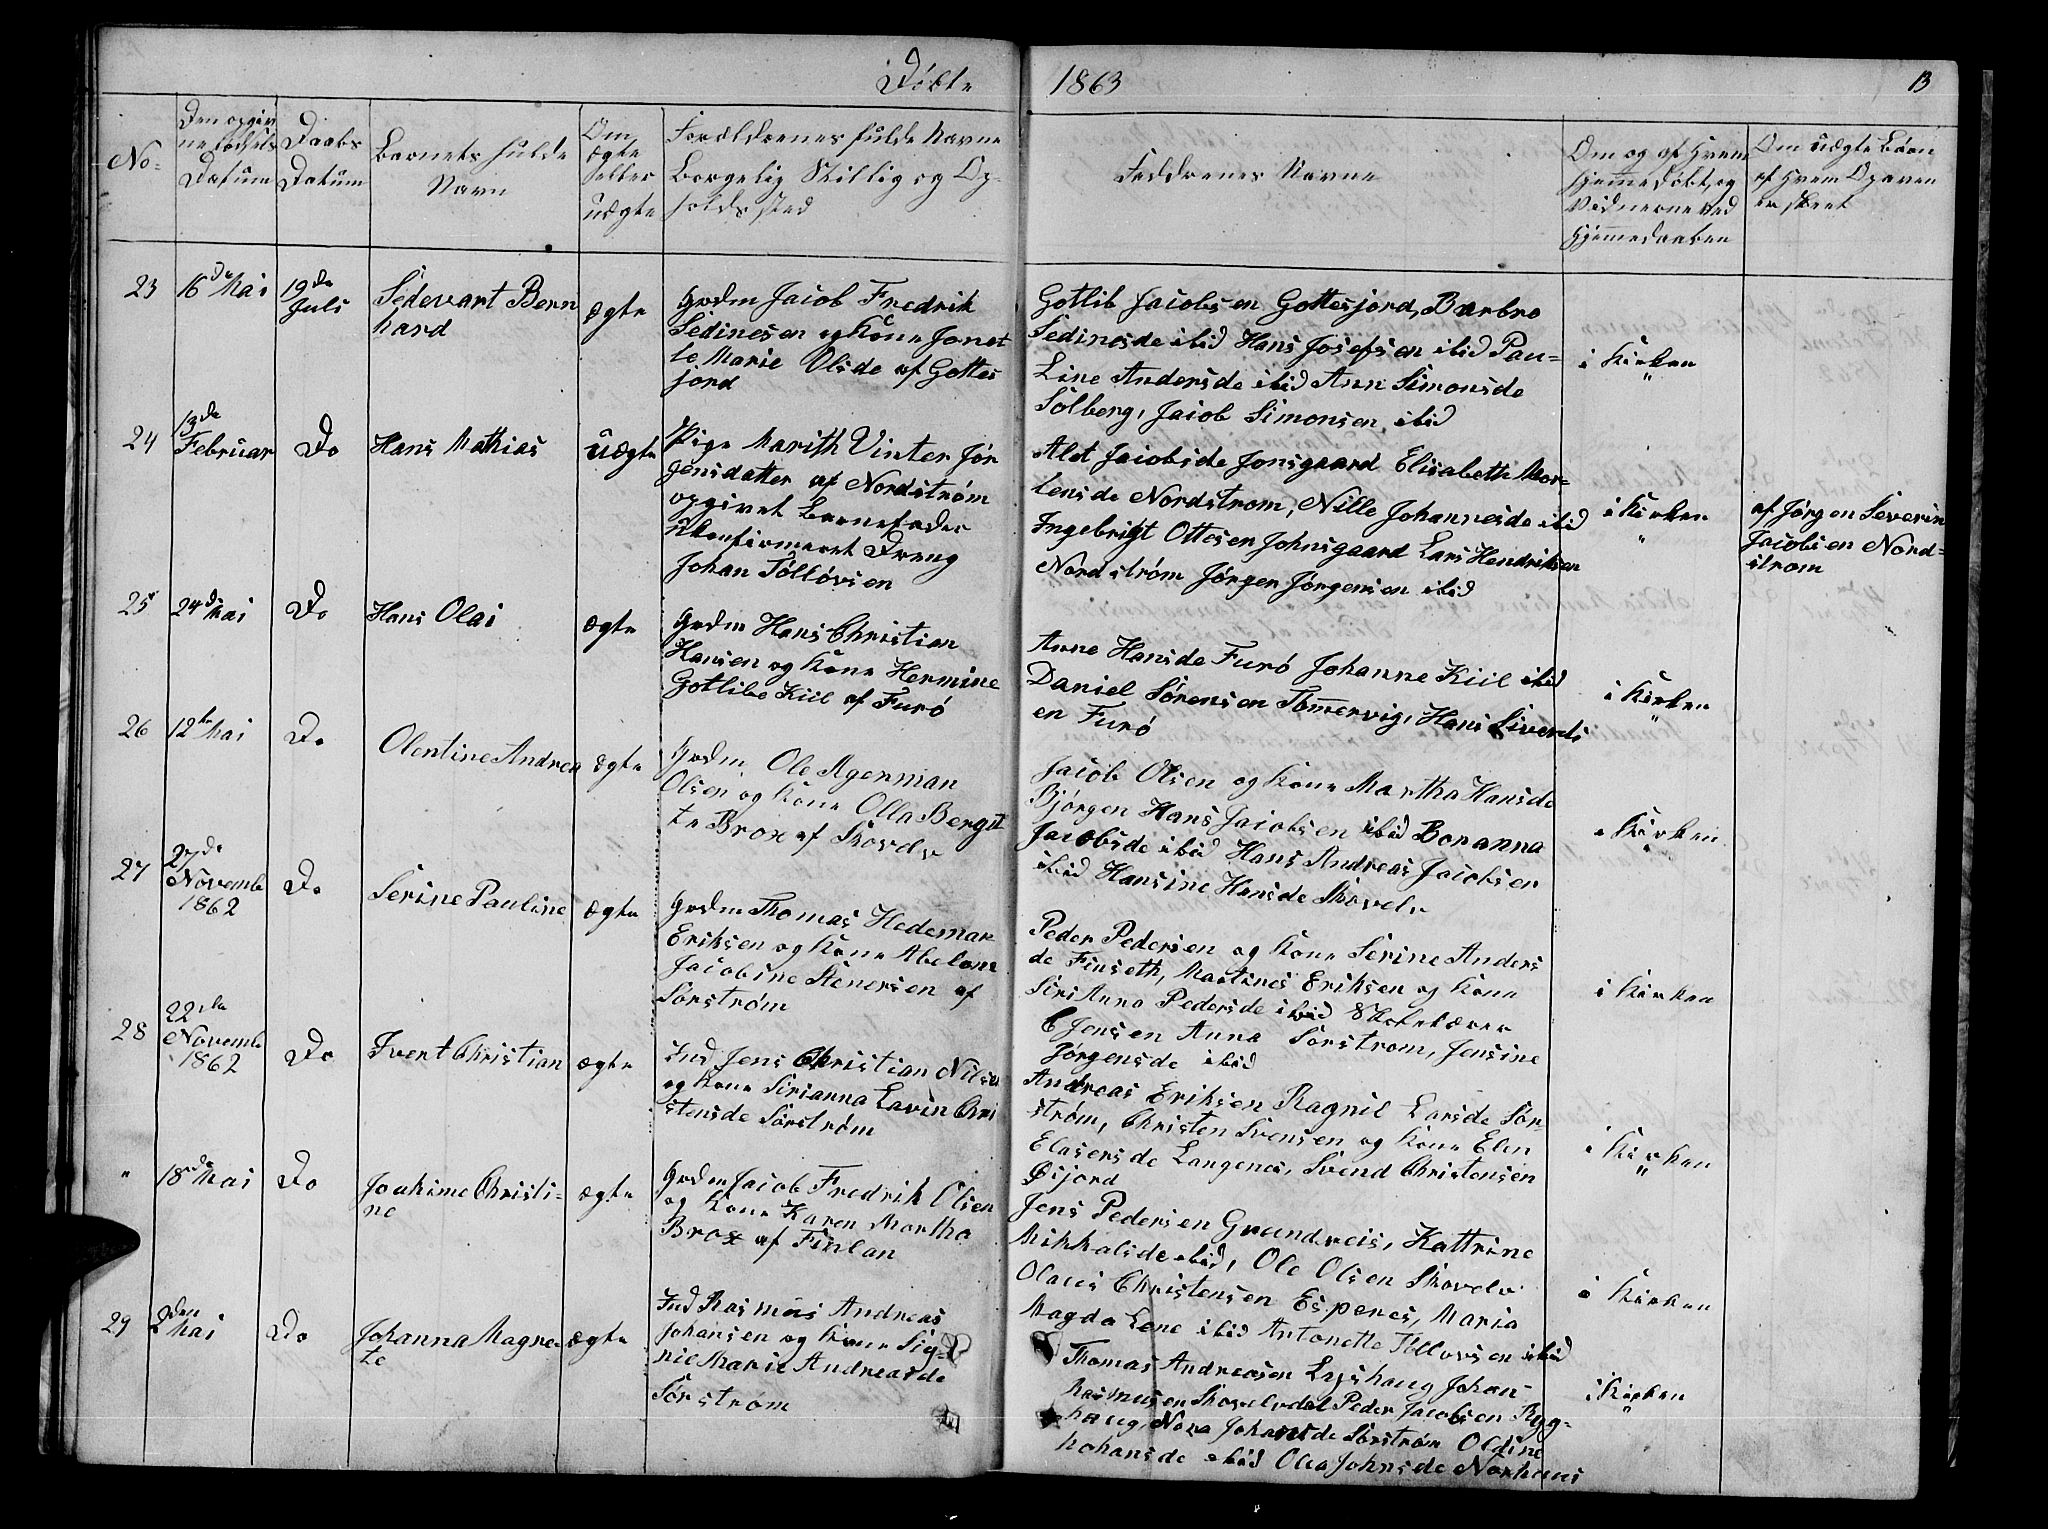 Døbte 1863 13
No.
Den opgiv
ne Fødsels
Datum
Daabs
Datum
Barnets fulde
Navn
Om
ægte
heller
uægte
Forældrenes fulde Navne
Borgelig Stillig og Op-
holdssted
Faddrenes Navne
Om og af Hvem
Hjemmedøbt, og
Vidnerne ved
Hjemmedaaben
Om uægte Børn
af Hvem Opgaven
er skeet
23 16de Mai 19de Juli Sedevart Bern
hard
ægte
Grdm Jacob Fredrik
Sedinesen og Kone Janet
te Marie Olsde af Gottes
jord
Gotlib Jacobsen Gottesjord, Barbro
Sedinesde ibid Hans Josefsen ibid Pau-
Line Andersde ibid Ann Simonsde
Solberg, Jacob Simonsen ibid
i Kirken
24 13de
Februar Do Hans Mathias uægte
Pige Marith Vinter Jør
gensdatter af Nordstrøm
opgivet Barnefader
ukonfirmeret Dreng
Johan Tølløvsen
Alet Jacobsde Jonsgaard Elisabeth Mor-
tensde Nordstrom, Nille Johannesde ibid
Ingebrigt Ottesen Johnsgaard Lars Hendriksen
Nordstrøm Jørgen Jørgensen ibid
i Kirken
af Jørgen Severin
Jacobsen Nord-
strom
25 24de Mai Do Hans Olai ægte
Grdm Hans Christian
Hansen og Kone Hermine
Gotlibe Kiil af Furø
Anne Hansde Furø Johanne Kiil ibid
Daniel Sørensen Tømmervig, Hans Siverts
en Furø
i Kirken
26 12te Mai Do Olentine Andrea ægte
Grdm Ole Agerman
Olsen og Kone Olla Bergit
te Brox af Skovelv
Jacob Olsen og Kone Martha Hansde
Bjørgen Hans Jacobsen ibid Bonanna
Jacobsde ibid Hans Andreas Jacobsen
ibid Hansine Hansde Skovelv
i Kirken
27 27de
Novemb
1862 Do Serine Pauline ægte
Grdm Thomas Hedeman
Eriksen og Kone Abelone
Jacobine Stenersen af
Sørstrøm
Peder Pedersen og Kone Serine Anders
de Finseth, Martines Eriksen og Kone
Siri Anna Pedersde ibid Skolelærer
C Jensen Anna Sørstrom, Jensine
Jørgensde ibid
i Kirken
28 22de
Novemb
1862 Do Ivert Christian ægte
Ind Jens Christian Nilsen
og Kone Sirianna Lavin Chri
stensde Sørstrøm
Andreas Eriksen Ragnil Larsde Sør
strøm, Christen Svensen og Kone Elen
Elasersde Langenes, Svend Christensen
Øsjord
i Kirken
" 18de Mai Do Joakime Christi-
ne
ægte
Grdm Jacob Fredrik Olsen
og Kone Karen Martha
Brox af Finlan
Jens Pedersen Grundreis, Kattrine
Mikkalsde ibid, Ole Olsen Skovelv
Olaus Christensen Espenes, Maria
Magda Lene ibid Antonette Tøllovsen ibid
i Kirken
29 2den
Mai Do Johanna Magre-
te
ægte
Ind Rasmus Andreas
Johansen og Kone Sig-
nie Marie Andreasde
Sørstrøm
Thomas Andreasen Lyshaug Johan
Rasmusen Skovelvdal Peder Jacobsen Ryg-
haug, Nora Johansde Sørstrøm Oldine
Johansde ibid Olea Johnsde Norhuus
i Kirken